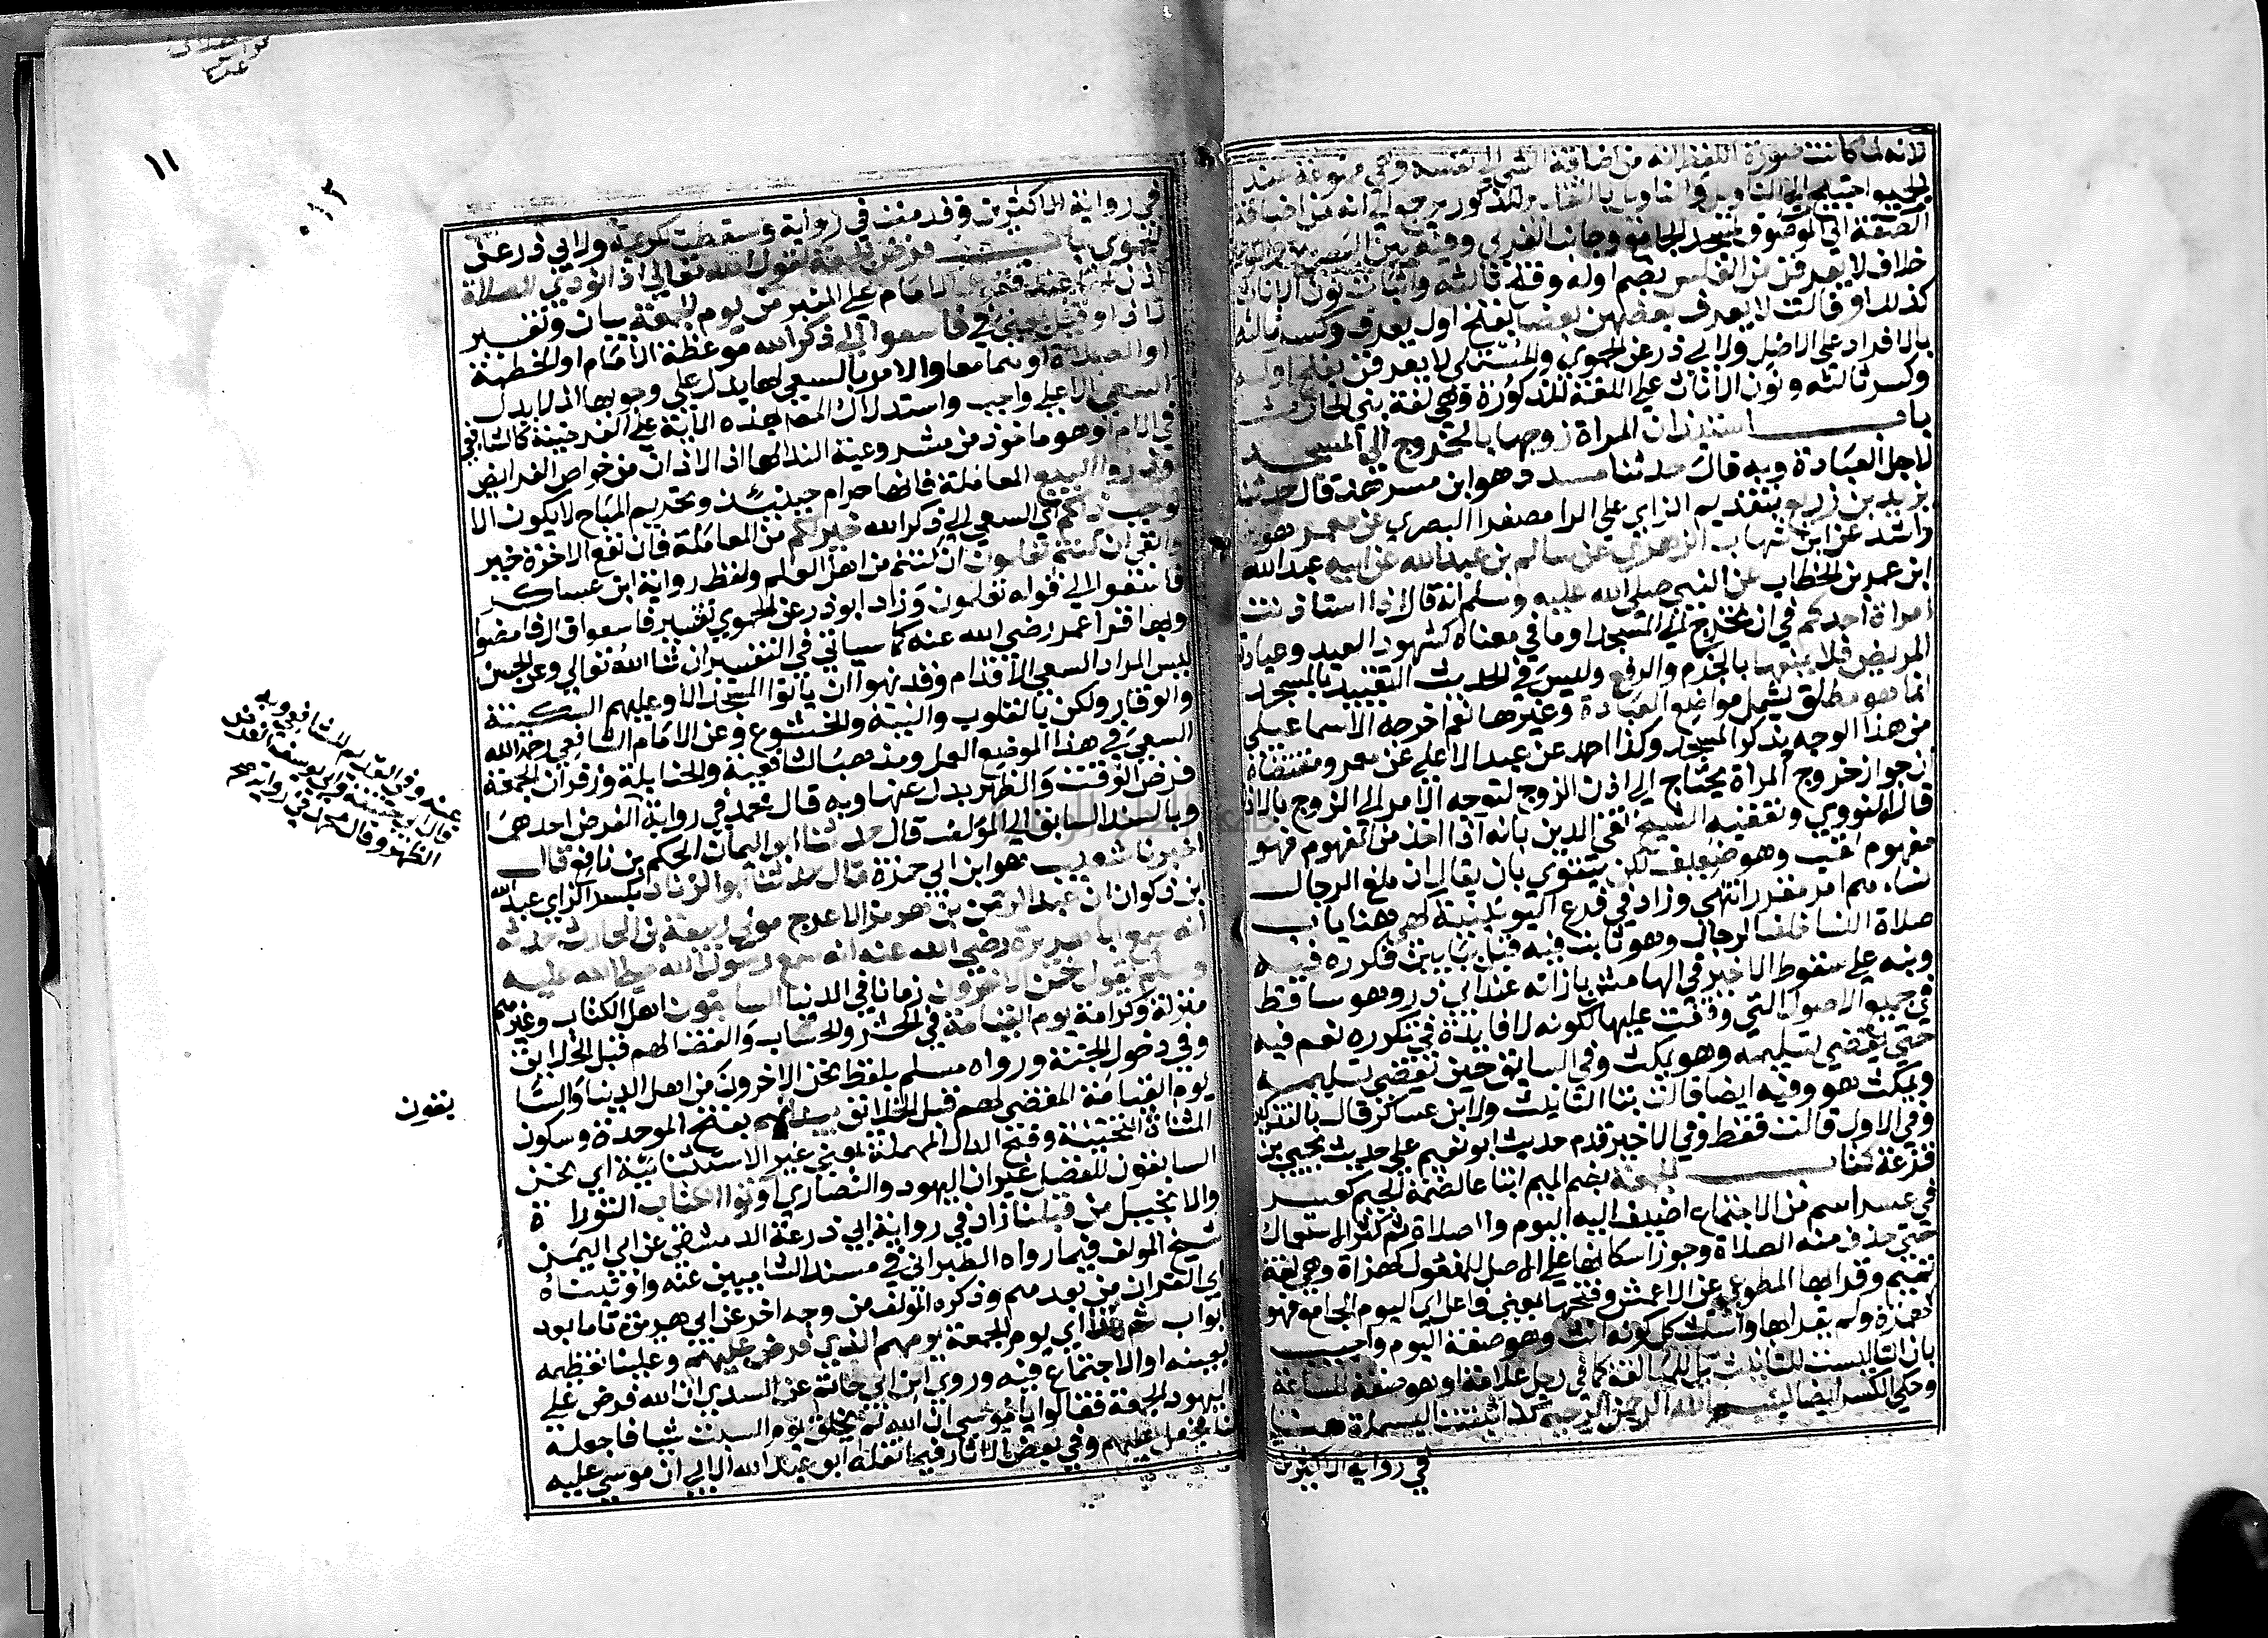 لانه لما كانت صورة اللفظ انه من اضافة الشي الي نفسه وهي ممنوعة عند
الجميع احتيج الي التاويل والتاويل المذكور يرجع الي انه من اضافة
الصفة الي الموصوف كمسجد الجامع وجانب الغربي وفيه بين البصريين والكوفيين
خلاف لا يعرفن من الغلس بضم اوله وفتح ثالثه واثبات نون الاناث
كذلك او قالت لا يعرف بعضهن بعضا بفتح اول يعرف وكسر ثالثه
بالافراد علي الاصل ولابي ذر عن الحموي والمستملي لا يعرفن بفتح اوله
وكسر ثالثه ونون الاناث علي اللغة المذكورة وهي لغة بني الحارث
باب استئذان المراة زوجها بالخروج الي المسجد
لاجل العبادة وبه قال حدثنا مسدد وهو ابن مسرهد قال حدثنا
يزيد بن زريع بتقديم الزاي علي الرا مصغرا البصري عن معمر هو بن
راشد عن ابن شهاب الزهري عن سالم بن عبد الله عن ابيه عبد الله
ابن عمر بن الخطاب عن النبي صلي الله عليه وسلم انه قال اذا استاذنت
امراة احدكم في ان تخرج الي المسجد او ما في معناه كشهود العيد وعيادة
المريض فلا يمنعها بالجزم والرفع وليس في الحديث التقييد بالمسجد
انما هو مطلق يشمل مواضع العبادة وغيرها نعم اخرجه الاسماعيلي
من هذا الوجه بذكر المسجد وكذا احمد عن عبد الاعلي عن معمر ومقتضاه
ان جواز خروج المراة يحتاج الي اذن الزوج لتوجه الامر الي الزوج بالاذن
قاله النووي وتعقبه الشيخ تقي الدين بانه اذا اخذ من المفهوم فهو
مفهوم لقب وهو ضعيف لكن يتقوي بان يقال ان منع الرجال
نساءهم امر مقرر انتهي وزاد في فرع اليونينية كهي هنا باب
صلاة النسا خلف الرجال وهو ثابت فيه قبل ببابين فكرره فيه
ونبه علي سقوط الاخير في الهامش بازائه عند ابي ذر وهو ساقط
في جميع الاصول التي وقفت عليها لكونه لا فايدة في تكرره نعم فيه
حتي يقضي تسليمه وهو يمكث وفي السابق حين يقضي تسليمه
ويمكث هو وفيه ايضا قالت بتا التانيث ولابن عساكر قال بالتذكير
وفي الاول قالت فقط وفي الاخير قدم حديث ابو نعيم علي حديث يحيي بن
قزعة كتاب الجمعة بضم الميم اتباعا لضمة الجيم كعسر
في عسر اسم من الاجتماع اضيف اليه اليوم والصلاة ثم كثر الاستعمال
حتي حذف منه الصلاة وجوز اسكانها علي الاصل للمفعول كهزاة وهي لغة
تميم وقرا بها المطوعي عن الاعمش وفتحها بمعني فاعل اي اليوم الجامع فهو
كهمزة ولم يقرا بها واستشكل كونه انث وهو صفة اليوم واجيب
بان التا ليست للتانيث بل للمبالغة كما في رجل علامة او هو صفة للساعة
وحكي الكسر ايضا بسم الله الرحمن الرحيم كذا ثبتت البسملة هنا
في رواية الاكثرين
١١
١٢
في رواية الاكثرين وقدمت في رواية وسقطت لكريمة ولابي ذر عن
الحموي باب فرض الجمعة لقول الله تعالي اذا نودي للصلاة
اذن لها عند قعود الامام علي المنبر من يوم الجمعة بيان وتفسير
لاذا او قيل بمعني في فاسعوا الي ذكر الله موعظة الامام او الخطبة
او الصلاة او هما معا والامر بالسعي لها يدل علي وجوبها اذ لا يدل
السعي الا علي واجب واستدلال المص بهذه الاية علي الفرضية كالشافعي
في الام او هو ماخوذ من مشروعية الندا لها اذ الاذان من خواص الفرايض
وذروا البيع المعاملة فانها حرام حينئذ وتحريم المباح لا يكون الا
لوجب ذلكم اي السعي الي ذكر الله خير لكم من المعاملة فان نفع الاخرة خير
وابقي ان كنتم تعلمون ان كنتم من اهل العلم ولفظ رواية ابن عساكر
فاسعوا الي قوله تعلمون وزاد ابو ذر عن الحموي تفسير فاسعوا قال فامضوا
وبها قرا عمر رضي الله عنه كما سياتي في التفسير ان شا الله تعالي وعن الحسن
ليس المراد السعي الاقدام وقد نهوا ان ياتوا المسجد الا وعليهم السكينة
والوقار ولكن بالقلوب والنية والخشوع وعن الامام الشافعي رحمه الله
السعي في هذا الموضع العمل ومذهب الشافعية والحنابلة وزفر ان الجمعة
فرض الوقت والظهر بدل عنها وبه قال محمد في رواية الفرض احدهما
وبالسند السابق الي المولف قال حدثنا ابو اليمان الحكم بن نافع قال
اخبرنا شعيب هو ابن ابي حمزة قال حدثنا ابو الزناد بكسر الزاي عبد الله
ابن ذكوان ان عبد الرحمن بن هرمز الاعرج مولي ربيعة بن الحارث حدثه
انه سمع ابا هريرة رضي الله عنه انه سمع رسول الله صلي الله عليه
وسلم يقول نحن الاخرون زمانا في الدنيا السابقون اهل الكتاب وغيرهم
منزلة وكرامة يوم القيامة في الحشر والحساب والقضا لهم قبل الخلايق
وفي دخول الجنة ورواه مسلم بلفظ نحن الاخرون من اهل الدنيا والسا
يوم القيامة المقضي لهم قبل الخلائق بيد انهم بفتح الموحدة وسكون
المثناة التحتية وفتح الدال المهملة بمعني غير الاستثنائية اي نحن
السابقون للفضل غير ان اليهود والنصاري اوتوا الكتاب التوراة
والانجيل من قبلنا زاد في رواية ابي ذرعة الدمشقي عن ابي اليمن
شيخ المولف فيما رواه الطبراني في مسند الشاميين عنه واوتيناه
اي القران من بعدهم وذكره المولف من وجه اخر عن ابي هريرة تاما بعد
ابواب ثم هذا اي يوم الجمعة يومهم الذي فرض عليهم وعلينا تعظيمه
بعينه او الاجتماع فيه وروي ابن ابي حاتم عن السدي ان الله فرض علي
اليهود الجمعة فقالوا يا موسي ان الله لم يخلق يوم السبت شيا فاجعله
لنا فجعل عليهم وفي بعض الاثار فيما نقله ابو عبد الله الابي ان موسي عليه
عنه وفي القديم للشافعي وبه
قال ابو حنيفة وابو يوسف الفرض
الظهر وقال محمد في رواية عنه
بقون